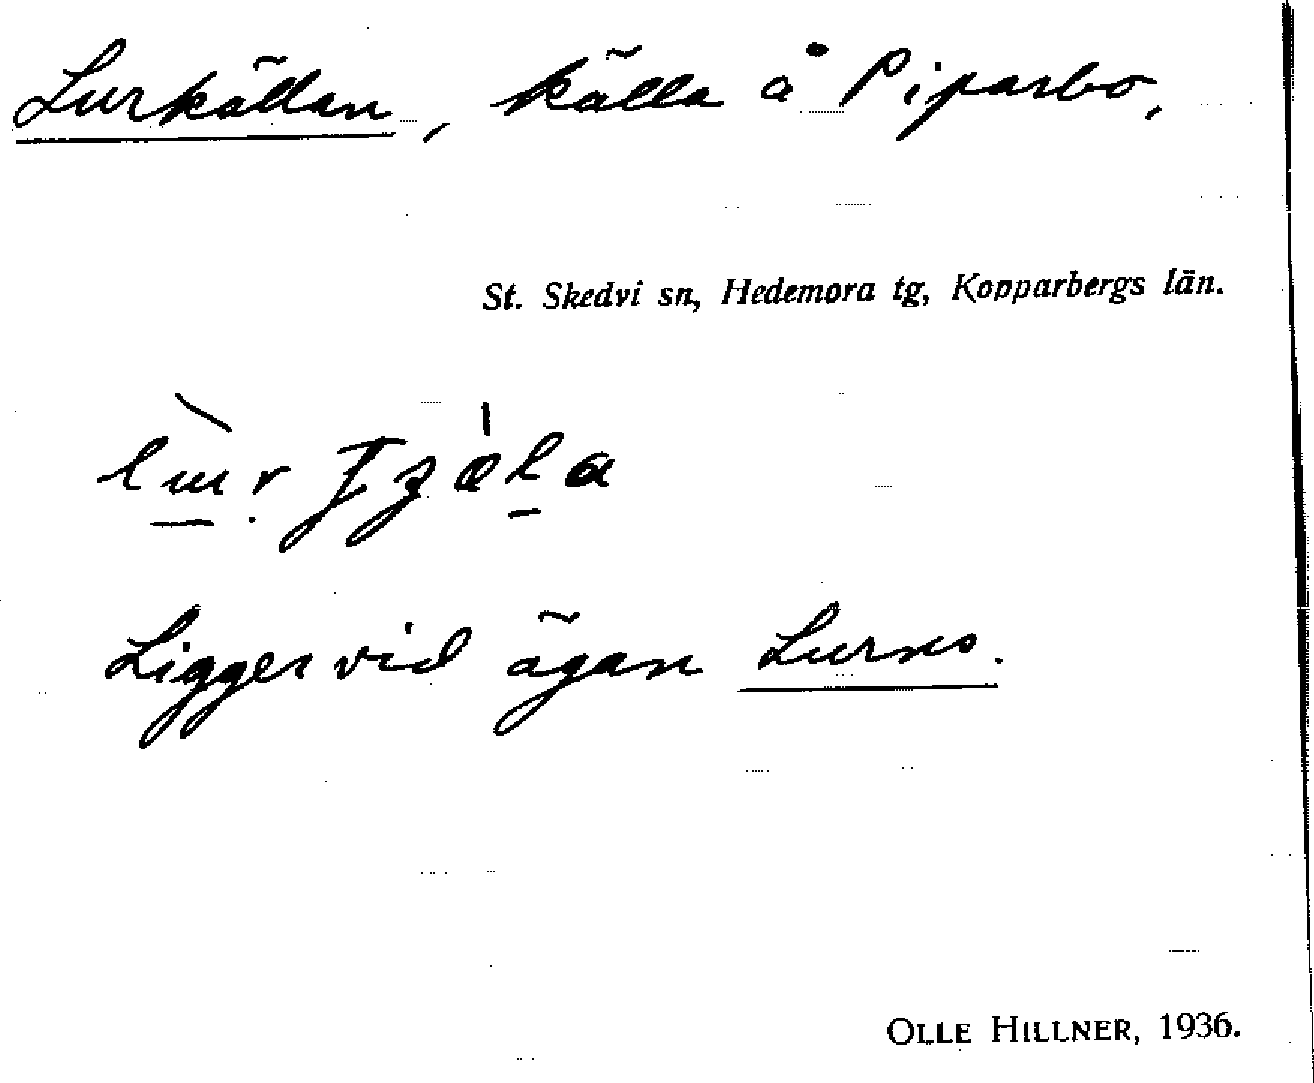 Lurkällan, källa å Piparbo,
St. Skedvi sn, Hedemora tg, Kopparbergs län.
Ligger vid ägan Lurns.
OLLE HILLNER, 1936.